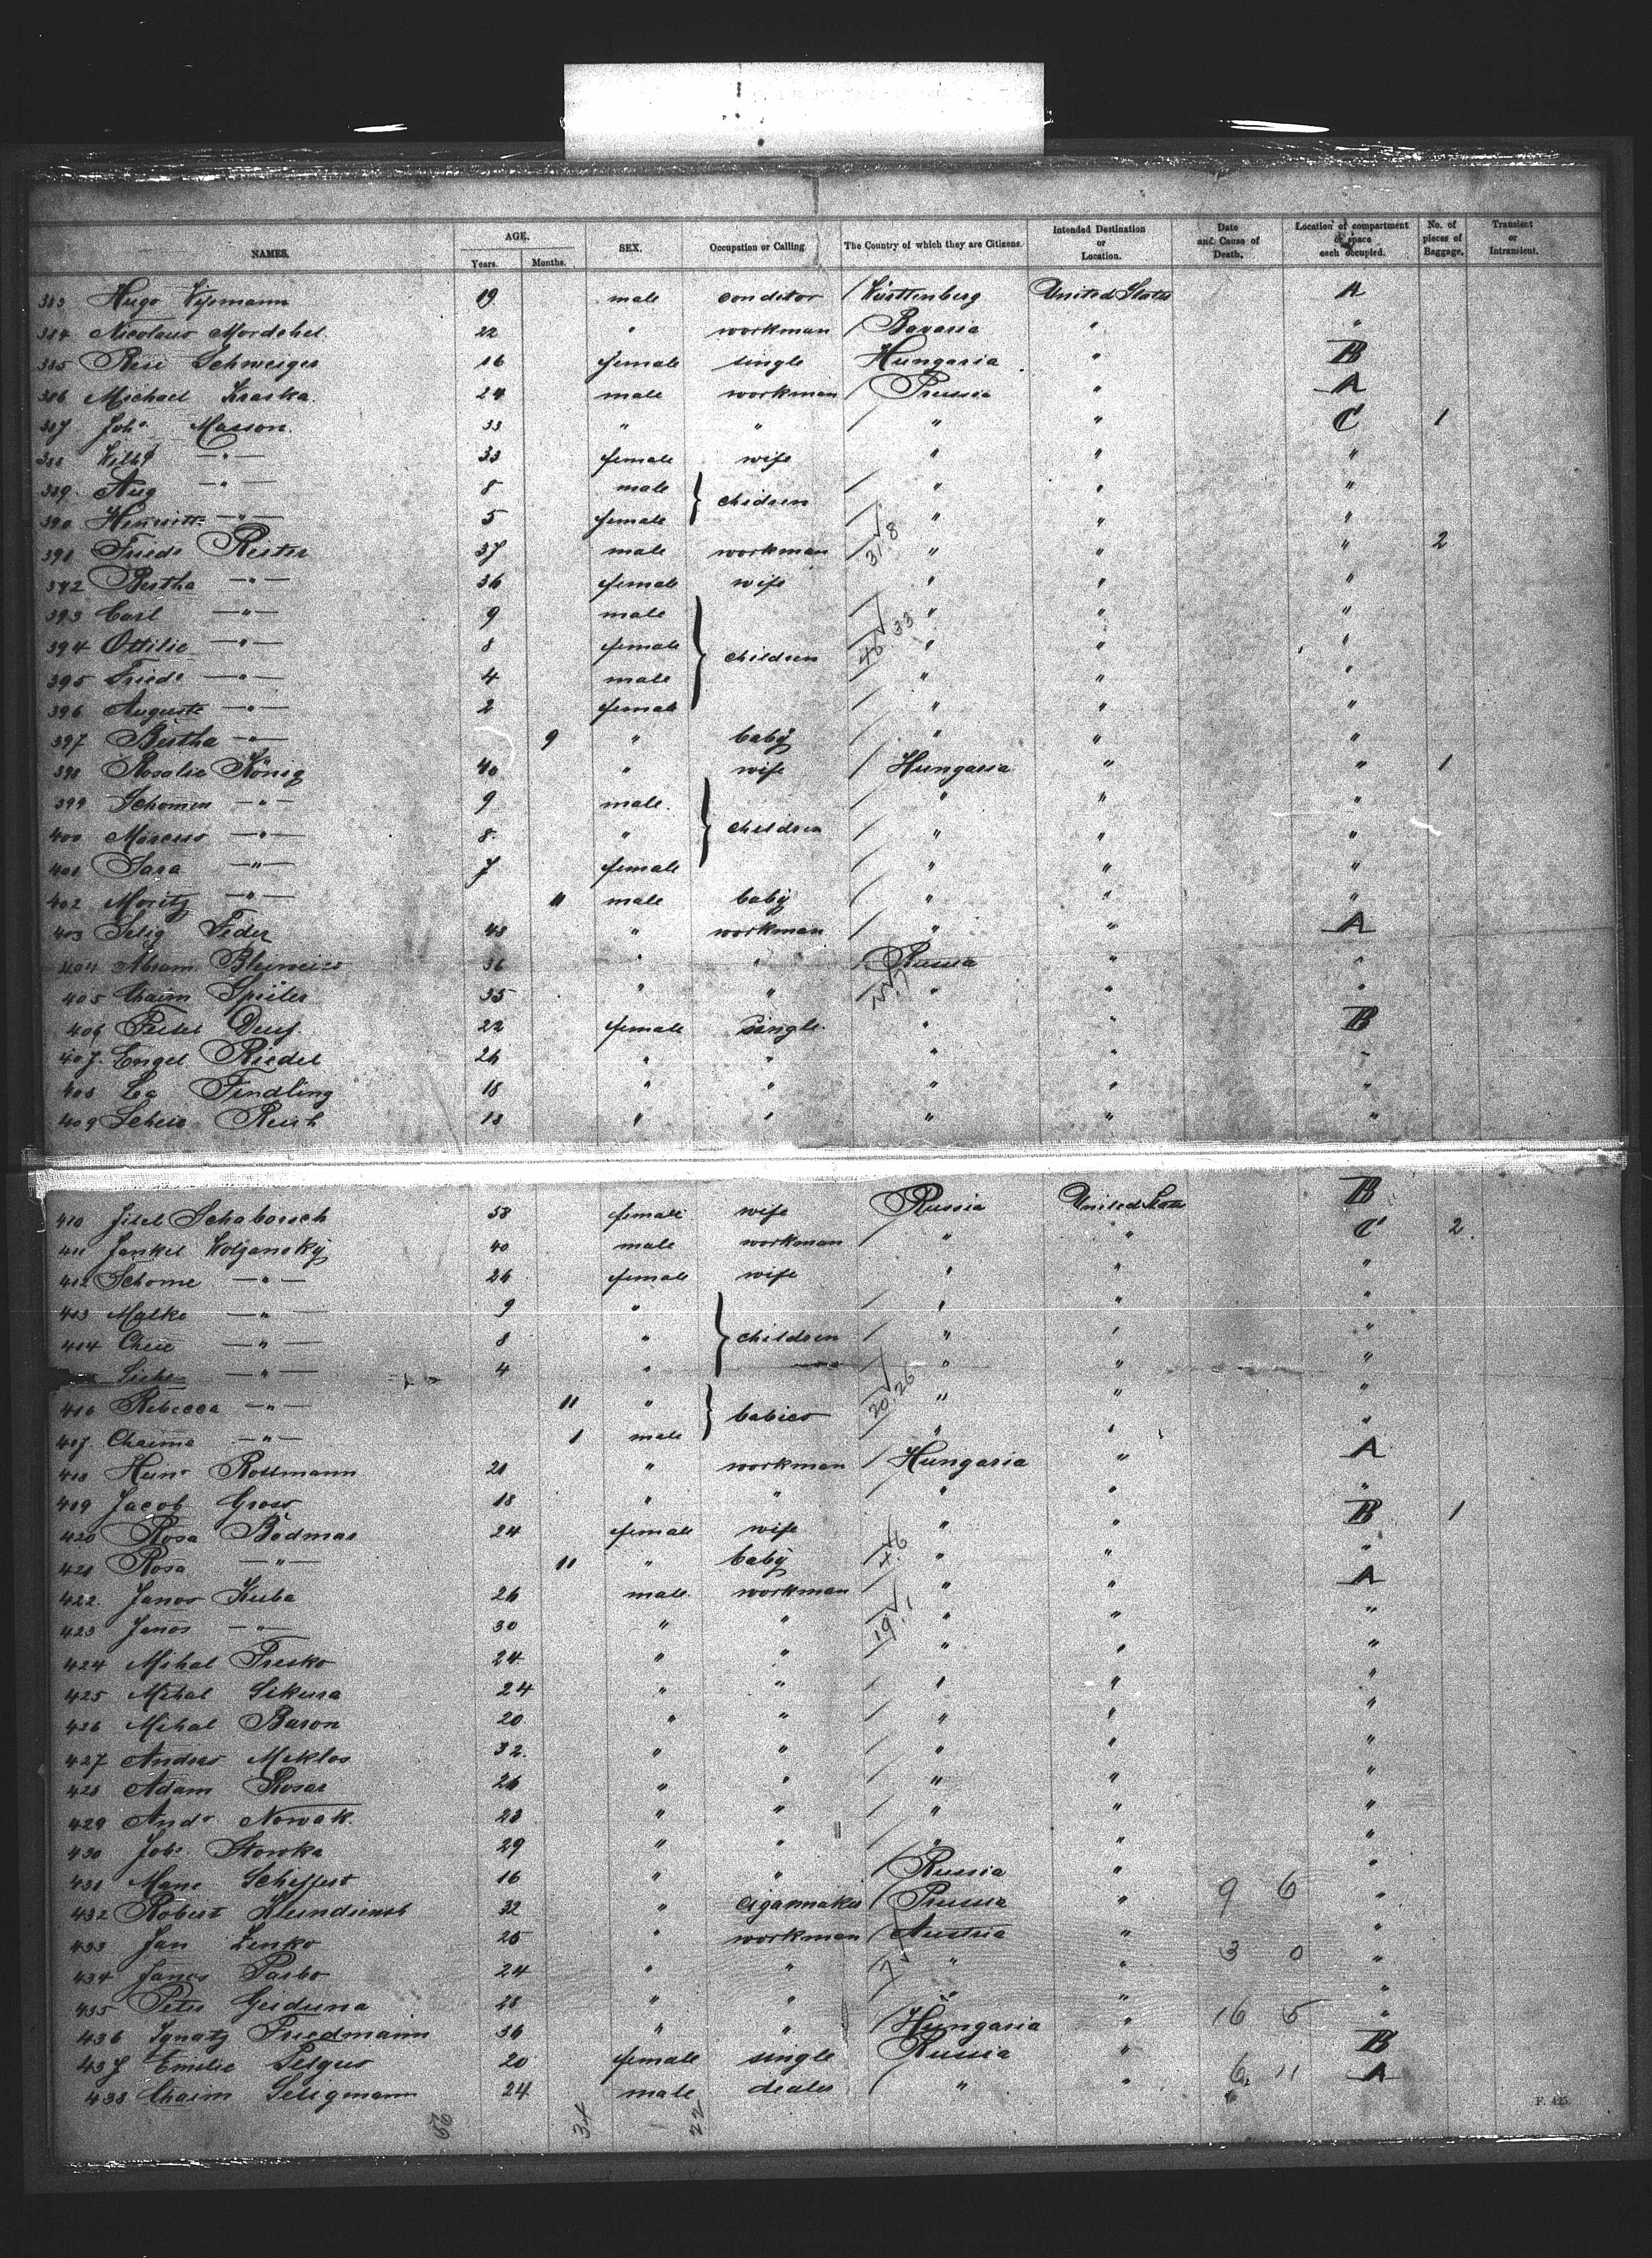 NAMES. AGE. Years. Months. SEX. Occupation or Calling The Country of which they are Citizens. Intended Destination or Location. Date and Cause of Death. Location of compartment or space each occupied. No. of pieces of Baggage. Transient or Intransient.
383 Hugo 19 male conditor Württenberg United States A
384 Nicolaus Mordchel 22 " workman Bavaria " "
385 Resi Schweiger 16 female single Hungaria " B
386 Michael Kraska 24 male workman Prussia " A
387 Joh. Masson 33 " " " " C 1
388 —"— 33 female wife " " "
389 Aug —"— 8 male } children " " "
390 —"— 5 female " " "
391 Friedr Rester 37 male workman 31.8 " " " 2
392 Bertha —"— 36 female wife " " "
393 Carl —"— 9 male " " "
394 Ottilie —"— 8 female } children 46 33 " " "
395 Friedr —"— 4 male " " "
396 Auguste —"— 2 female " " "
397 Bertha —"— 9 " baby " " "
398 Rosalie König 40 " wife Hungaria " " 1
399 —"— 9 male " " "
400 Marcus —"— 8 " } children " " "
401 Sara —"— 7 female " " "
402 Moritz —"— 11 male baby " " "
403 Selig Feder 43 " workman " " A
404 Abram 36 " " Russia " "
405 Chaim Spieler 35 " " " " "
406 22 female single " " B
407 Engel Riedel 26 " " " " "
408 Lea Findling 18 " " " " "
409 18 " " " " "
410 Schaborsch 58 female wife Russia United States B
411 Jankel Wolzansky 40 male workman " " C 2
412 Schome —"— 26 female wife " " "
413 Malke —"— 9 " " " "
414 —"— 8 " } children " " "
—"— 4 " " " "
416 Rebecca —"— 11 " } babies 20.26 " " "
417 Chaime —"— 1 male " " "
418 Heinr Rossmann 21 " workman Hungaria " A
419 Jacob Gross 18 " " " " "
420 Rosa Bodmar 24 female wife " " B 1
421 Rosa —"— 11 " baby 4.6 " " "
422 Janos Kuba 26 male workman " " A
423 Janos —"— 30 " " 19.1 " " "
424 Mihal Fresko 24 " " " " "
425 Mihal Sikura 24 " " " " "
426 Mihal Baron 20 " " " " "
427 Andras Miklos 32 " " " " "
428 Adam Kosar 26 " " " " "
429 Andr Nowak 23 " " " " "
430 Joh. 29 " " " " "
431 16 " " Russia " "
432 Robert 32 " Cigarmaker Prussia " 9 6 "
433 Jan Zenko 25 " workman Austria " "
434 Janos 24 " " 7 " " 3 0 "
435 Peter 28 " " " " "
436 Ignatz Friedmann 36 " " Hungaria " 16 5 "
437 Emilie 20 female single Russia " B
438 Chaim Seligmann 24 male dealer " " 6 11 A
56 34 22
F. 425.